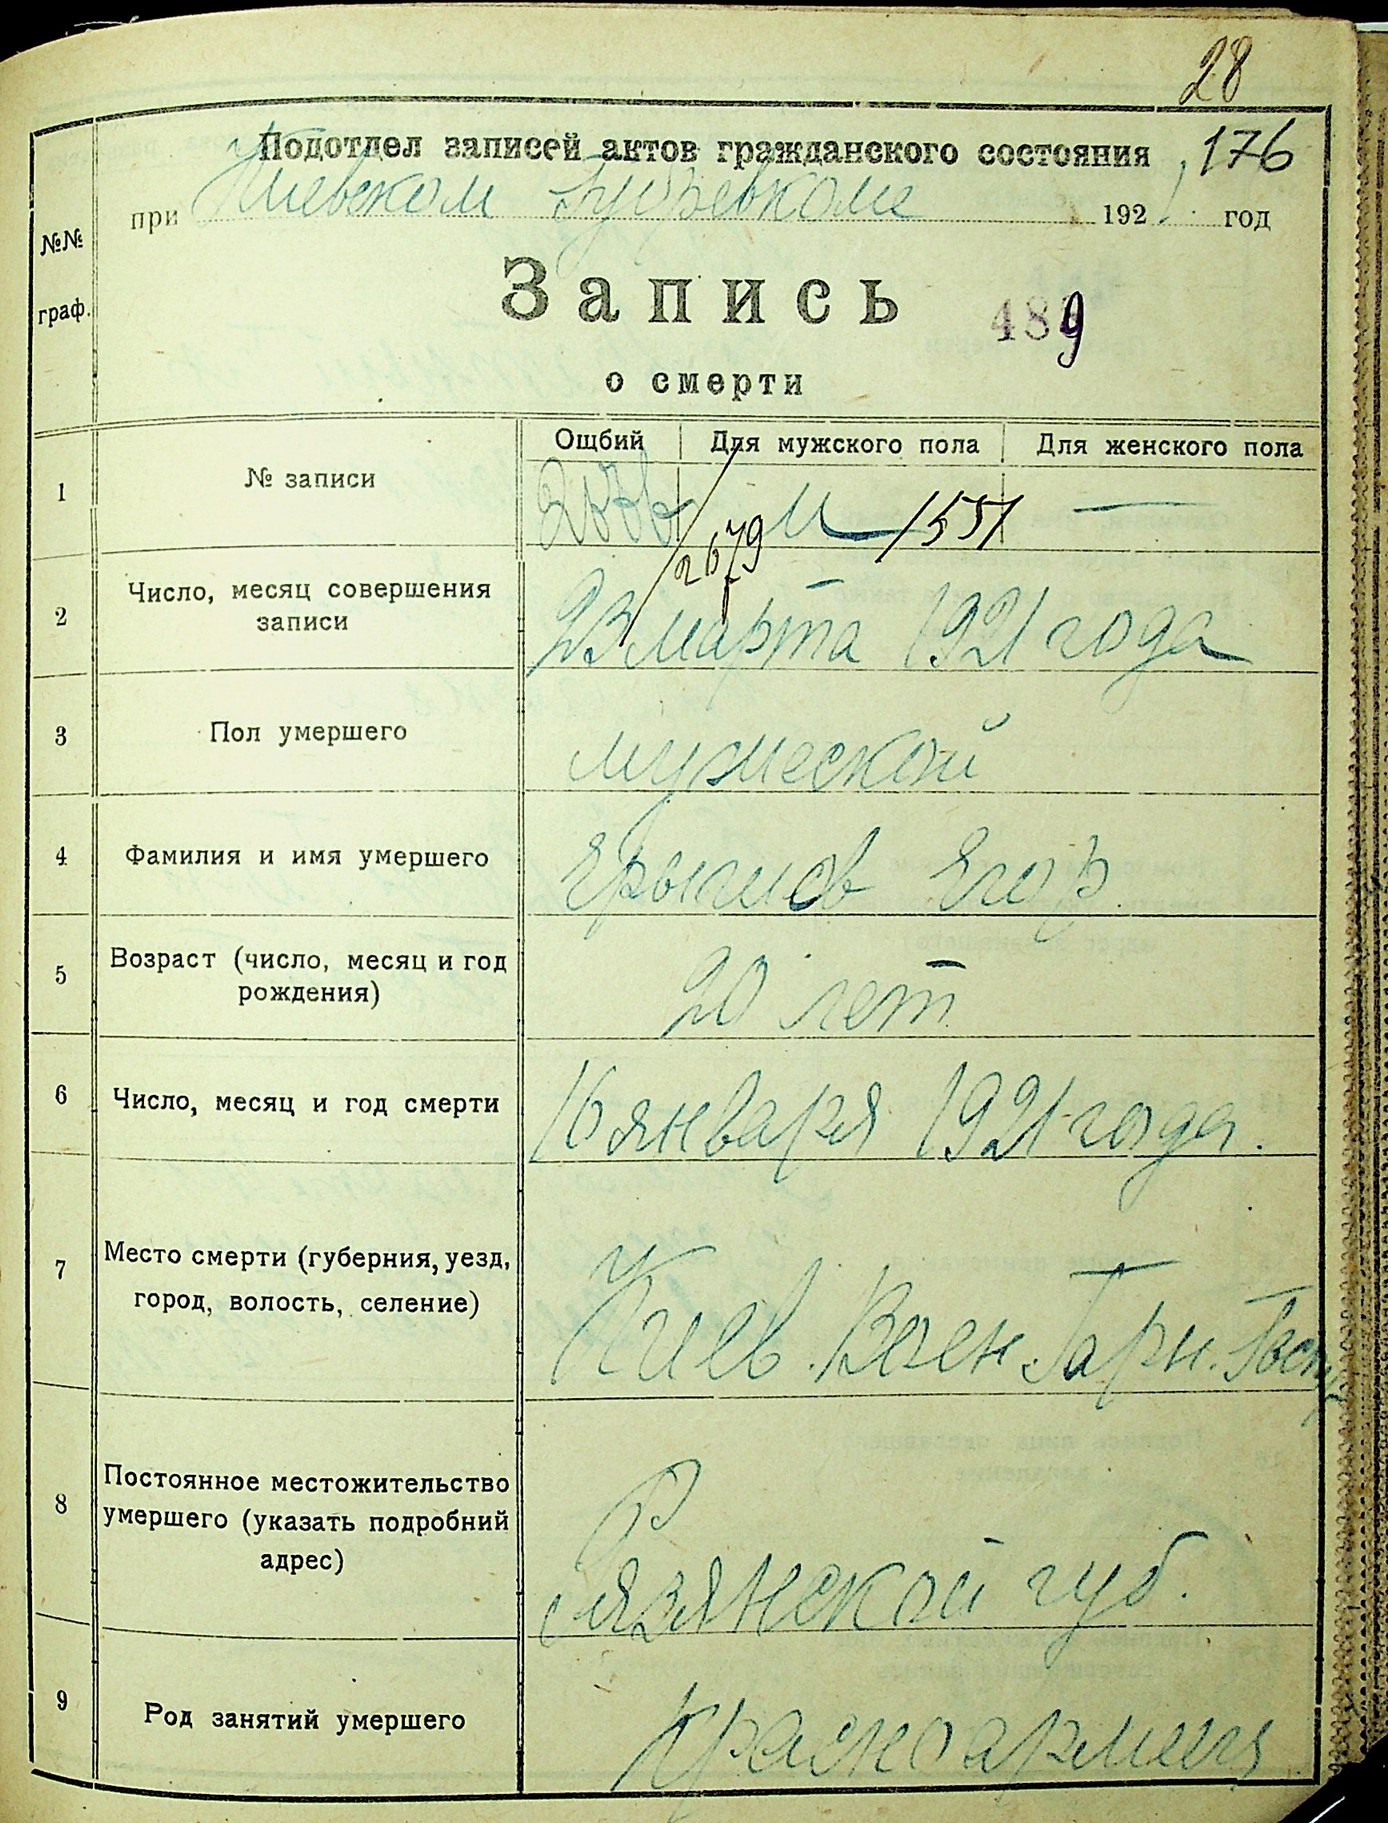 28
Подотдел записей актов гражданского состояния 176
при Киевском Губревкоме 1921 год
№№ граф.
Запись
489
о смерти
Ощбий Для мужского пола Для женского пола
1 № записи 2679 М 1551 —
2 Число, месяц совершения записи 23 марта 1921 года
3 Пол умершего мужеской
4 Фамилия и имя умершего Егор
5 Возраст (число, месяц и год рождения) 20 лет
6 Число, месяц и год смерти 16 января 1921 года.
7 Место смерти (губерния, уезд, город, волость, селение) Киев. Воен. Гарн. Госп
8 Постоянное местожительство умершего (указать подробний адрес) Рязянской губ.
9 Род занятий умершего Красноармеец